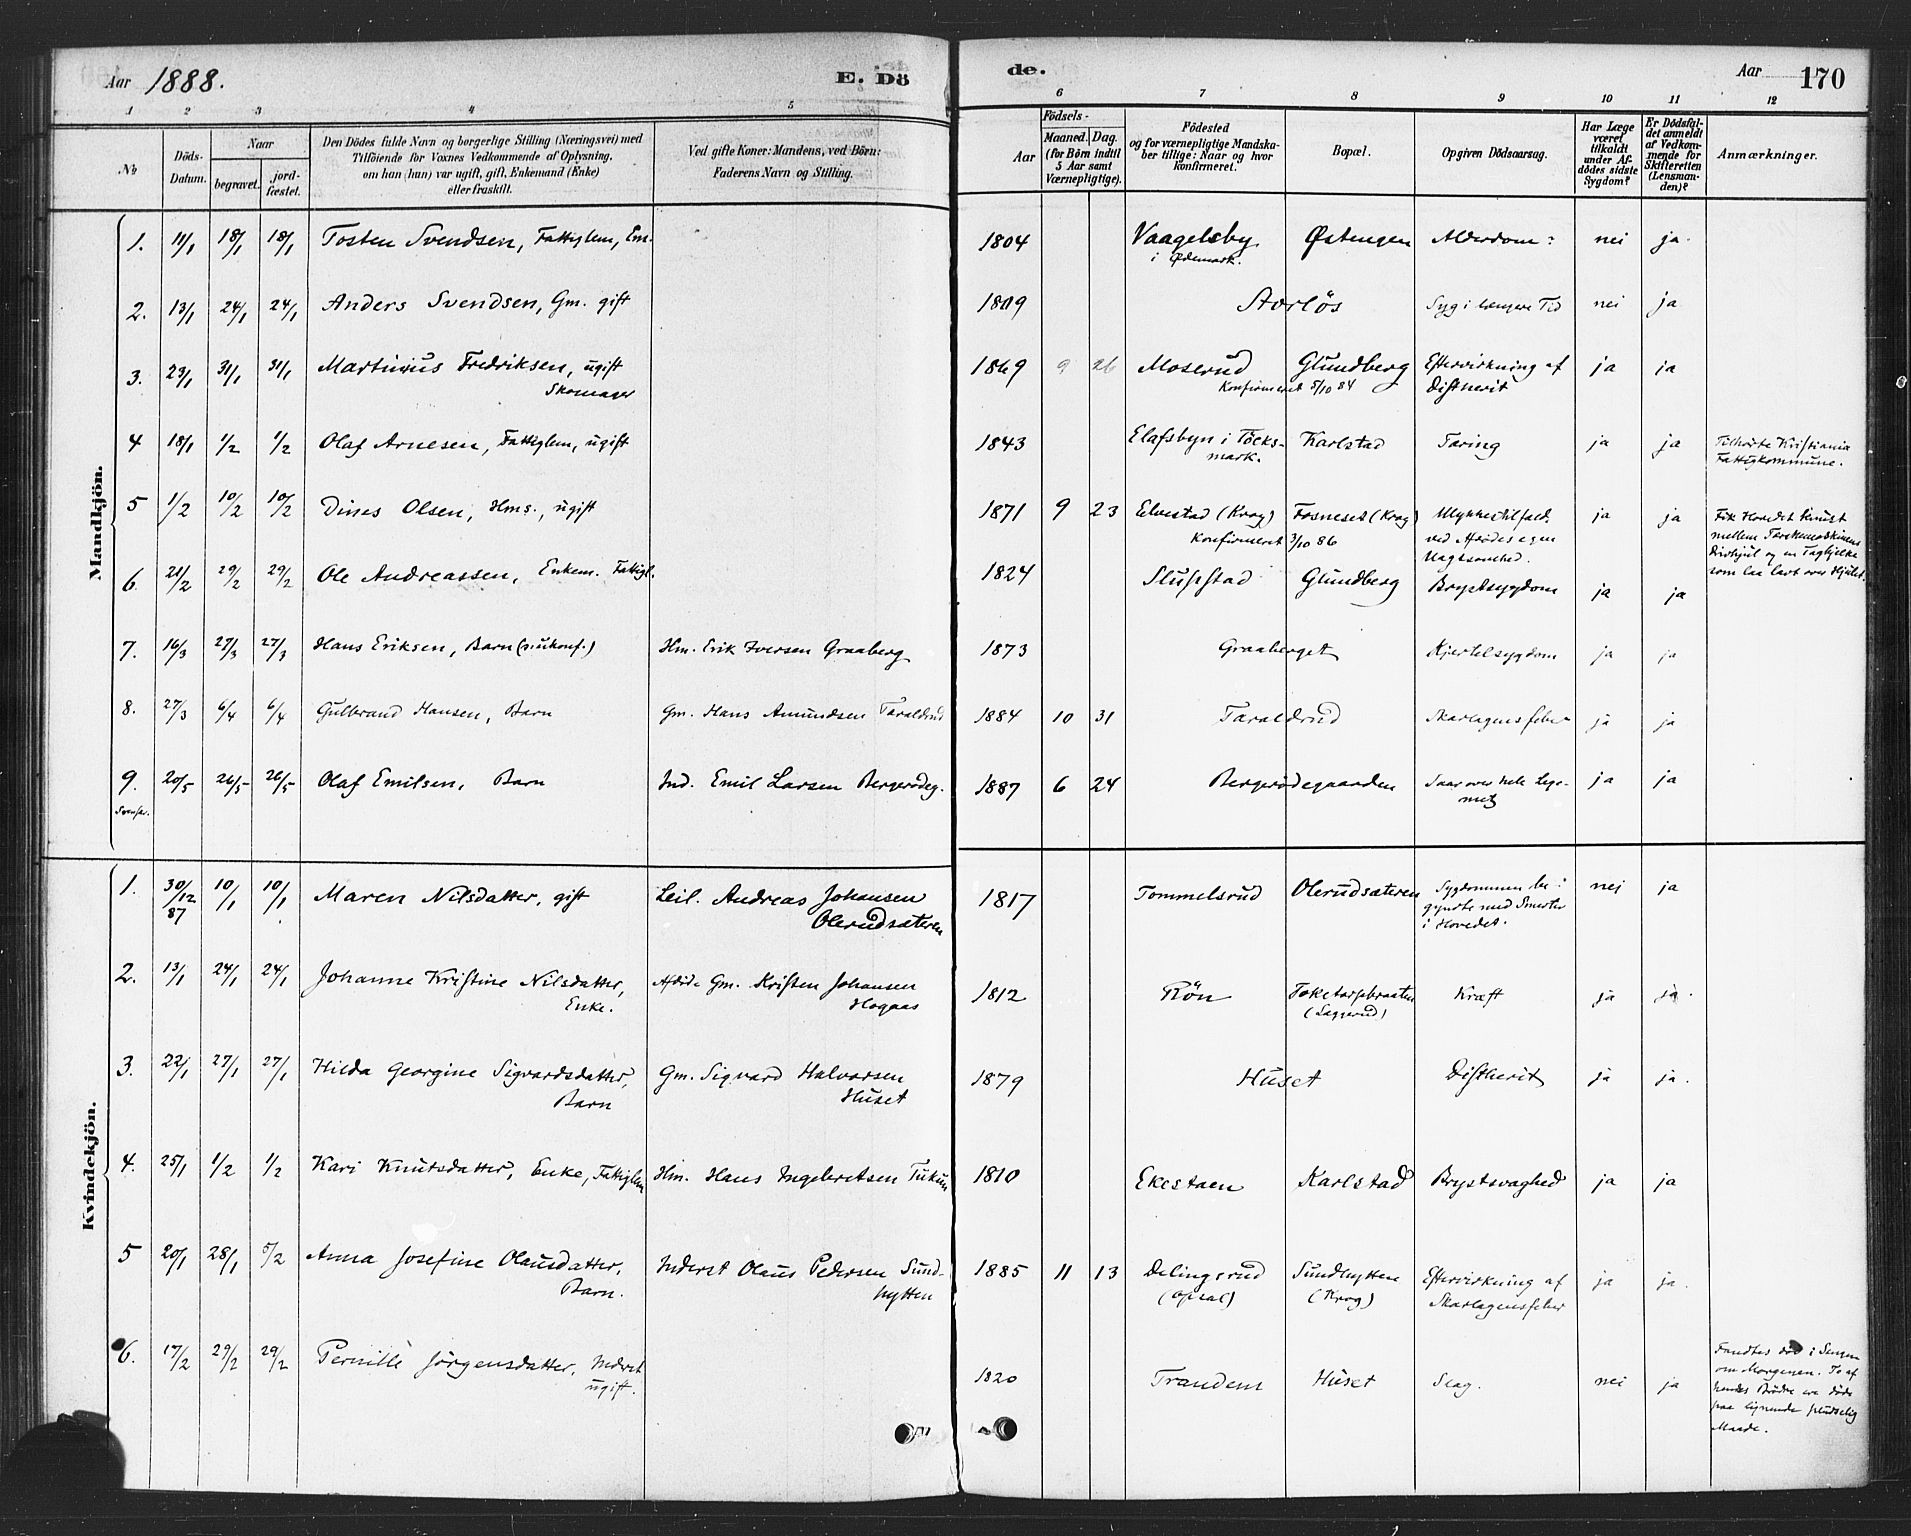 Aar 1888. E. Dö de. Aar 170
1 2 3 4 5 6 7 8 9 10 11 12
No
Döds-Datum.
Naar
begravet.
jord-fæstet.
Den Dödes fulde Navn og borgerlige Stilling (Næringsvei) med
Tilföiende for Voxnes Vedkommende af Oplysning,
om han (hun) var ugift, gift, Enkemand (Enke)
eller fraskilt.
Ved gifte Koner: Mandens, ved Börn:
Faderens Navn og Stilling.
Födsels-
Aar
Maaned. Dag.
(for Börn indtil
5 Aar samt
Værnepligtige).
Födested
og for værnepligtige Mandska-
ber tillige: Naar og hvor
konfirmeret.
Bopæl.
Opgiven Dödsaarsag.
Har Læge
været
tilkaldt
under Af-
dödes sidste
Sygdom?
Er Dödsfal-
det anmeldt
af Vedkom-
mende for
Skifteretten
(Lensman-
den)?
Anmærkninger.
Mandkjön.
1. 11/1 18/1 18/1 Tosten Svendsen, Fattiglem, Em. 1804 Vaagelsby Østengen Alderdom nei ja.
i Ødemark.
2. 13/1 24/1 24/1 Anders Svendsen, Gm. gift 1809 Storløs Syg i længere Tid nei ja
3. 23/1 31/1 31/1 Martinius Fredriksen, ugift 1869 9 26 Moserud Glundberg Eftervirkning af ja ja
Skomager Konfirmeret 5/10 84 Difterit
4 18/1 1/2 1/2 Olaf Arnesen, Fattiglem, ugift 1843 Elafsbyn i Töcks- Karlstad Taring ja ja Tilhørte Kristiania
mark. Fattigkommune.
5 1/2 10/2 10/2 Dines Olsen, Hms., ugift 1871 9 23 Elvestad (Krog) Fosneset (Krog) Ulykkestilfæld. ja ja Fik Hovedet knust
Konfirmeret 3/10 86 ved Afdødes egen mellem Tærskemaskinens
Uagtsomhed. Drivhjul og en Tagbjelke
som laa lavt over Hjulet.
6 21/2 29/2 29/2 Ole Andreassen, Enkem. Fattigl. 1824 Slupstad Glundberg Brystsygdom ja ja
7. 16/3 27/3 27/3 Hans Eriksen, Barn (ukonf.) Hm. Erik Iversen Graaberg 1873 Graaberget Kjertelsygdom ja ja
8. 27/3 6/4 6/4 Gulbrand Hansen, Barn Gm. Hans Amundsen Taraldrud 1884 10 31 Taraldrud Skarlagensfeber ja ja
9. 20/5 26/5 26/5 Olaf Emilsen, Barn Ind. Emil Larsen Bergerødeg. 1887 6 24 Bergerødegaarden Saar over hele Lege- ja ja
met
Kvindekjön.
1. 30/12 87 10/1 10/1 Maren Nilsdatter, gift Leil. Andreas Johansen 1817 Tommelsrud Olerudsæteren Sygdommen be- nei ja
Olerudsæteren gyndte med Smerter
i Hovedet.
2. 13/1 24/1 24/1 Johanne Kristine Nilsdatter, Afdøde Gm. Kristen Johansen 1812 Røn Toketorpbraaten Kræft ja ja.
Enke. Hogaas
3. 22/1 27/1 27/1 Hilda Georgine Sigvardsdatter, Gm. Sigvard Halvorsen 1879 Huset Difterit ja ja.
Barn Huset
4. 25/1 1/2 1/2 Kari Knutsdatter, Enke, Fattiglem Hm. Hans Ingebretsen 1810 Ekestaen Karlstad Brystsvaghed ja ja
5 20/1 28/1 5/2 Anna Josefine Olausdatter, Inderst Olaus Pedersen Sund- 1885 11 13 Delingsrud Sundhytten Eftervirkning af ja ja.
Barn. hytten (Opsal) (Krog) Skarlagensfeber
6. 17/2 29/2 29/2 Pernille Jörgensdatter, Inderst 1820 Trandem Huset Slag. nei ja Fandtes død i Sengen
ugift. om Morgenen. To af
hendes Brødre ere døde
paa lignende pludselig
Maade.